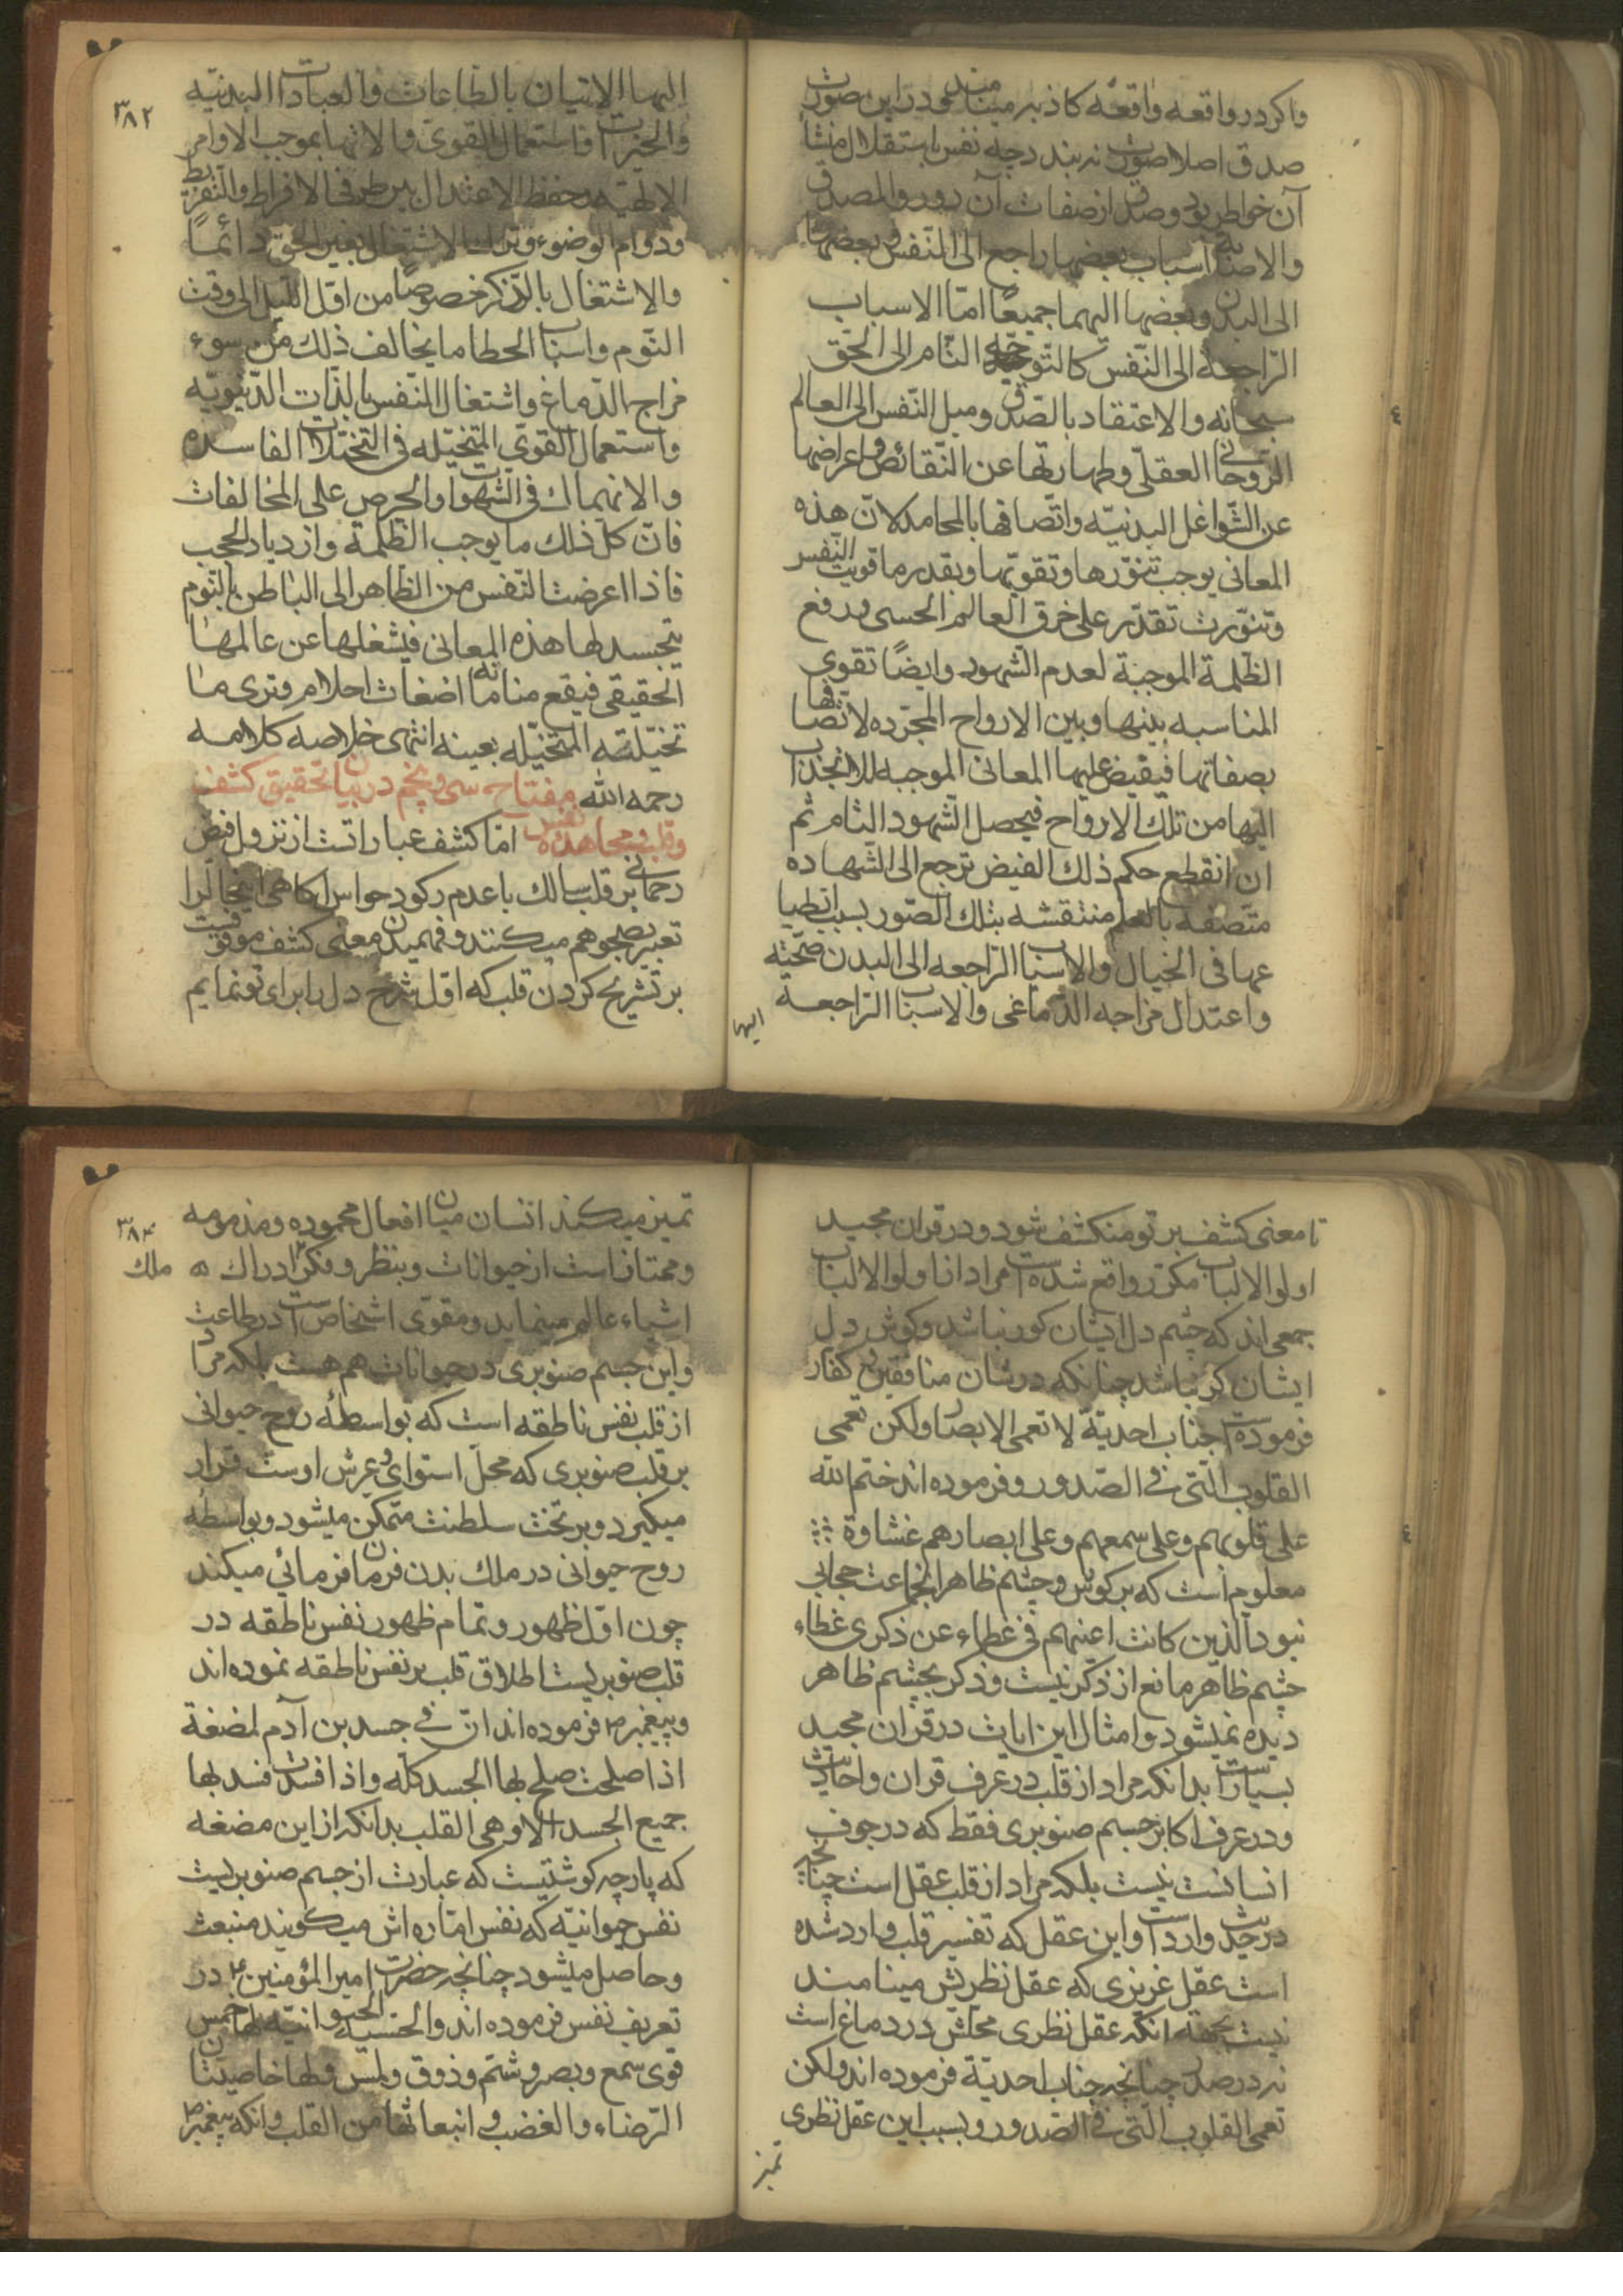 واکر در واقعه واقعه کاذبه مینامند و در این صورت
صدق اصلا صورت نه بندد چه نفس باستقلال منشأ
آن خواطر بود وصدق از صفات آن دور والمصدق
والاصابة اسباب بعضها راجع الی النّفس و بعضها
الی البدن وبعضها الیهما جمیعًا امّا الاسباب
الرّاجعة الی النّفس کالتّوجّه التّام الی الحقّ
سبحانه والاعتقاد بالصّدق ومیل النّفس الی العالم
الرّوحانی العقلی وطهارتها عن النّقائص واعراضها
عن الشّواغل البدنیّه واتّصافها بالمحامد لانّ هذه
المعانی یوجب تنوّرها وتقویّها وبقدر ما قویت النّفس
وتنوّرت تقدّر علی خرق العالم الحسی ورفع
الظّلمة الموجبة لعدم الشّهود وایضًا تقوی
المناسبه بینها وبین الارواح المجرّده لاتّصافها
بصفاتها فیفیض علیها المعانی الموجبه للانجذاب
الیها من تلک الارواح فیحصل الشّهود التّام ثم
ان انقطع حکم ذلک الفیض ترجع الی الشّهاده
متّصفه بالعلم منتقشه بتلک الصّور بسبب انطبا
عها فی الخیال والاسباب الرّاجعه الی البدن صحّته
واعتدال مزاجه الدّماغی والاسباب الرّاجعة
الیها
۳۸۲
الیها الاتیان بالطّاعات والعبادات البدنیّه
والخیرات واستعمال القوی والاتها بموجب الاوامر
الالهیّه وحفظ الاعتدال بین طرفی الافراط والتّفریط
ودوام الوضوء وترک الاشتغال بغیر الحق دائمًا
والاشتغال بالذّکر خصوصًا من اوّل اللّیل الی وقت
النّوم واسباب الخطا ما یخالف ذلک من سوء
مزاج الدّماغ واشتغال النّفس باللذّات الدّنیویّه
واستعمال القوی المتخیّله فی التخیّلات الفاسده
والانهماک فی الشّهوات والحرص علی المخالفات
فانّ کلّ ذلک ما یوجب الظّلمة وازدیاد الحجب
فاذا اعرضت النّفس من الظّاهر الی الباطن بالنّوم
یتجسد لها هذه المعانی فیشغلها عن عالمها
الحقیقی فیقع مناماته اضغاث احلام وتری ما
تخیّلته المتخیّله بعینه انتهی خلاصه کلامه
رحمه الله مفتاح سی وپنجم در بیان تحقیق کشف
وقلب ومجاهده نفس امّا کشف عبارتست از نزول فیض
رحمانی بر قلب سالک با عدم رکود حواس وکاهی اینحال را
تعبیر بصحو هم میکنند وفهمیدن معنی کشف موقوفست
بر تشریح کردن قلب که اوّل شرح دل را برای تو نمایم
تا معنی کشف بر تو منکشف شود ودر قران مجید
اولوالالباب مکرّر واقع شده است مراد از اولوالالباب
جمعی اند که چشم دل ایشان کور نباشد وکوش دل
ایشان کر نباشد چنانکه در شان منافقین و کفار
فرموده است جناب احدیّة لا تعمی الابصار ولکن تعمی
القلوب الّتی فی الصّدور وفرموده اند ختم الله
علی قلوبهم وعلی سمعهم وعلی ابصارهم غشاوة
معلوم است که بر کوش وچشم ظاهر انجماعت حجابی
نبود الّذین کانت اعینهم فی غطاء عن ذکری غطاء
چشم ظاهر مانع از ذکر نیست وذکر بچشم ظاهر
دیده نمیشود وامثال این ایات در قران مجید
بسیار است بدانکه مراد از قلب در عرف قران واحادیث
ودر عرف اکابر جسم صنوبری فقط که در جوف
انسانست نیست بلکه مراد از قلب عقل است چنانچه
در حدیث وارد است واین عقل که تفسیر قلب وارد شده
است عقل غریزی که عقل نظریش مینامند
نیست بجهة انکه عقل نظری محلّش در دماغ است
نه در صدر چنانچه جناب احدیّة فرموده اند ولکن
تعمی القلوب الّتی فی الصّدور وبسبب این عقل نظری
تمیز
۳۸۴
تمیز میکند انسان میان افعال محموده ومذمومه
وممتاز است از حیوانات وبنظر وفکر ادراک
ملک
اشیاء عالم مینماید ومقوّی اشخاص است در طاعت
واین جسم صنوبری در حیوانات هم هست بلکه مراد
از قلب نفس ناطقه است که بواسطهٔ روح حیوانی
بر قلب صنوبری که محلّ استوای وعرش اوست قرار
میکیرد وبر تخت سلطنت متمکّن میشود وبواسطه
روح حیوانی در ملک بدن فرمان فرمائی میکند
چون اوّل ظهور وتمام ظهور نفس ناطقه در
قلب صنوبریست اطلاق قلب بر نفس ناطقه نموده اند
وپیغمبر ص فرموده اند انّ فی جسد بن آدم لمضغة
اذا صلحت صلح بها الجسد کلّه واذا فسدت فسد بها
جمیع الجسد الا وهی القلب بدانکه از این مضغه
که پارچه کوشتیست که عبارت از جسم صنوبریست
نفس حیوانیّه که نفس امّاره اش میکویند منبعث
وحاصل میشود چنانچه حضرت امیر المؤمنین ع در
تعریف نفس فرموده اند والحسّیة الحیوانیّه لها خمس
قوی سمع وبصر وشمّ وذوق ولمس ولها خاصیتان
الرّضاء والغضب و انبعاثها من القلب وانکه پیغمبر ص